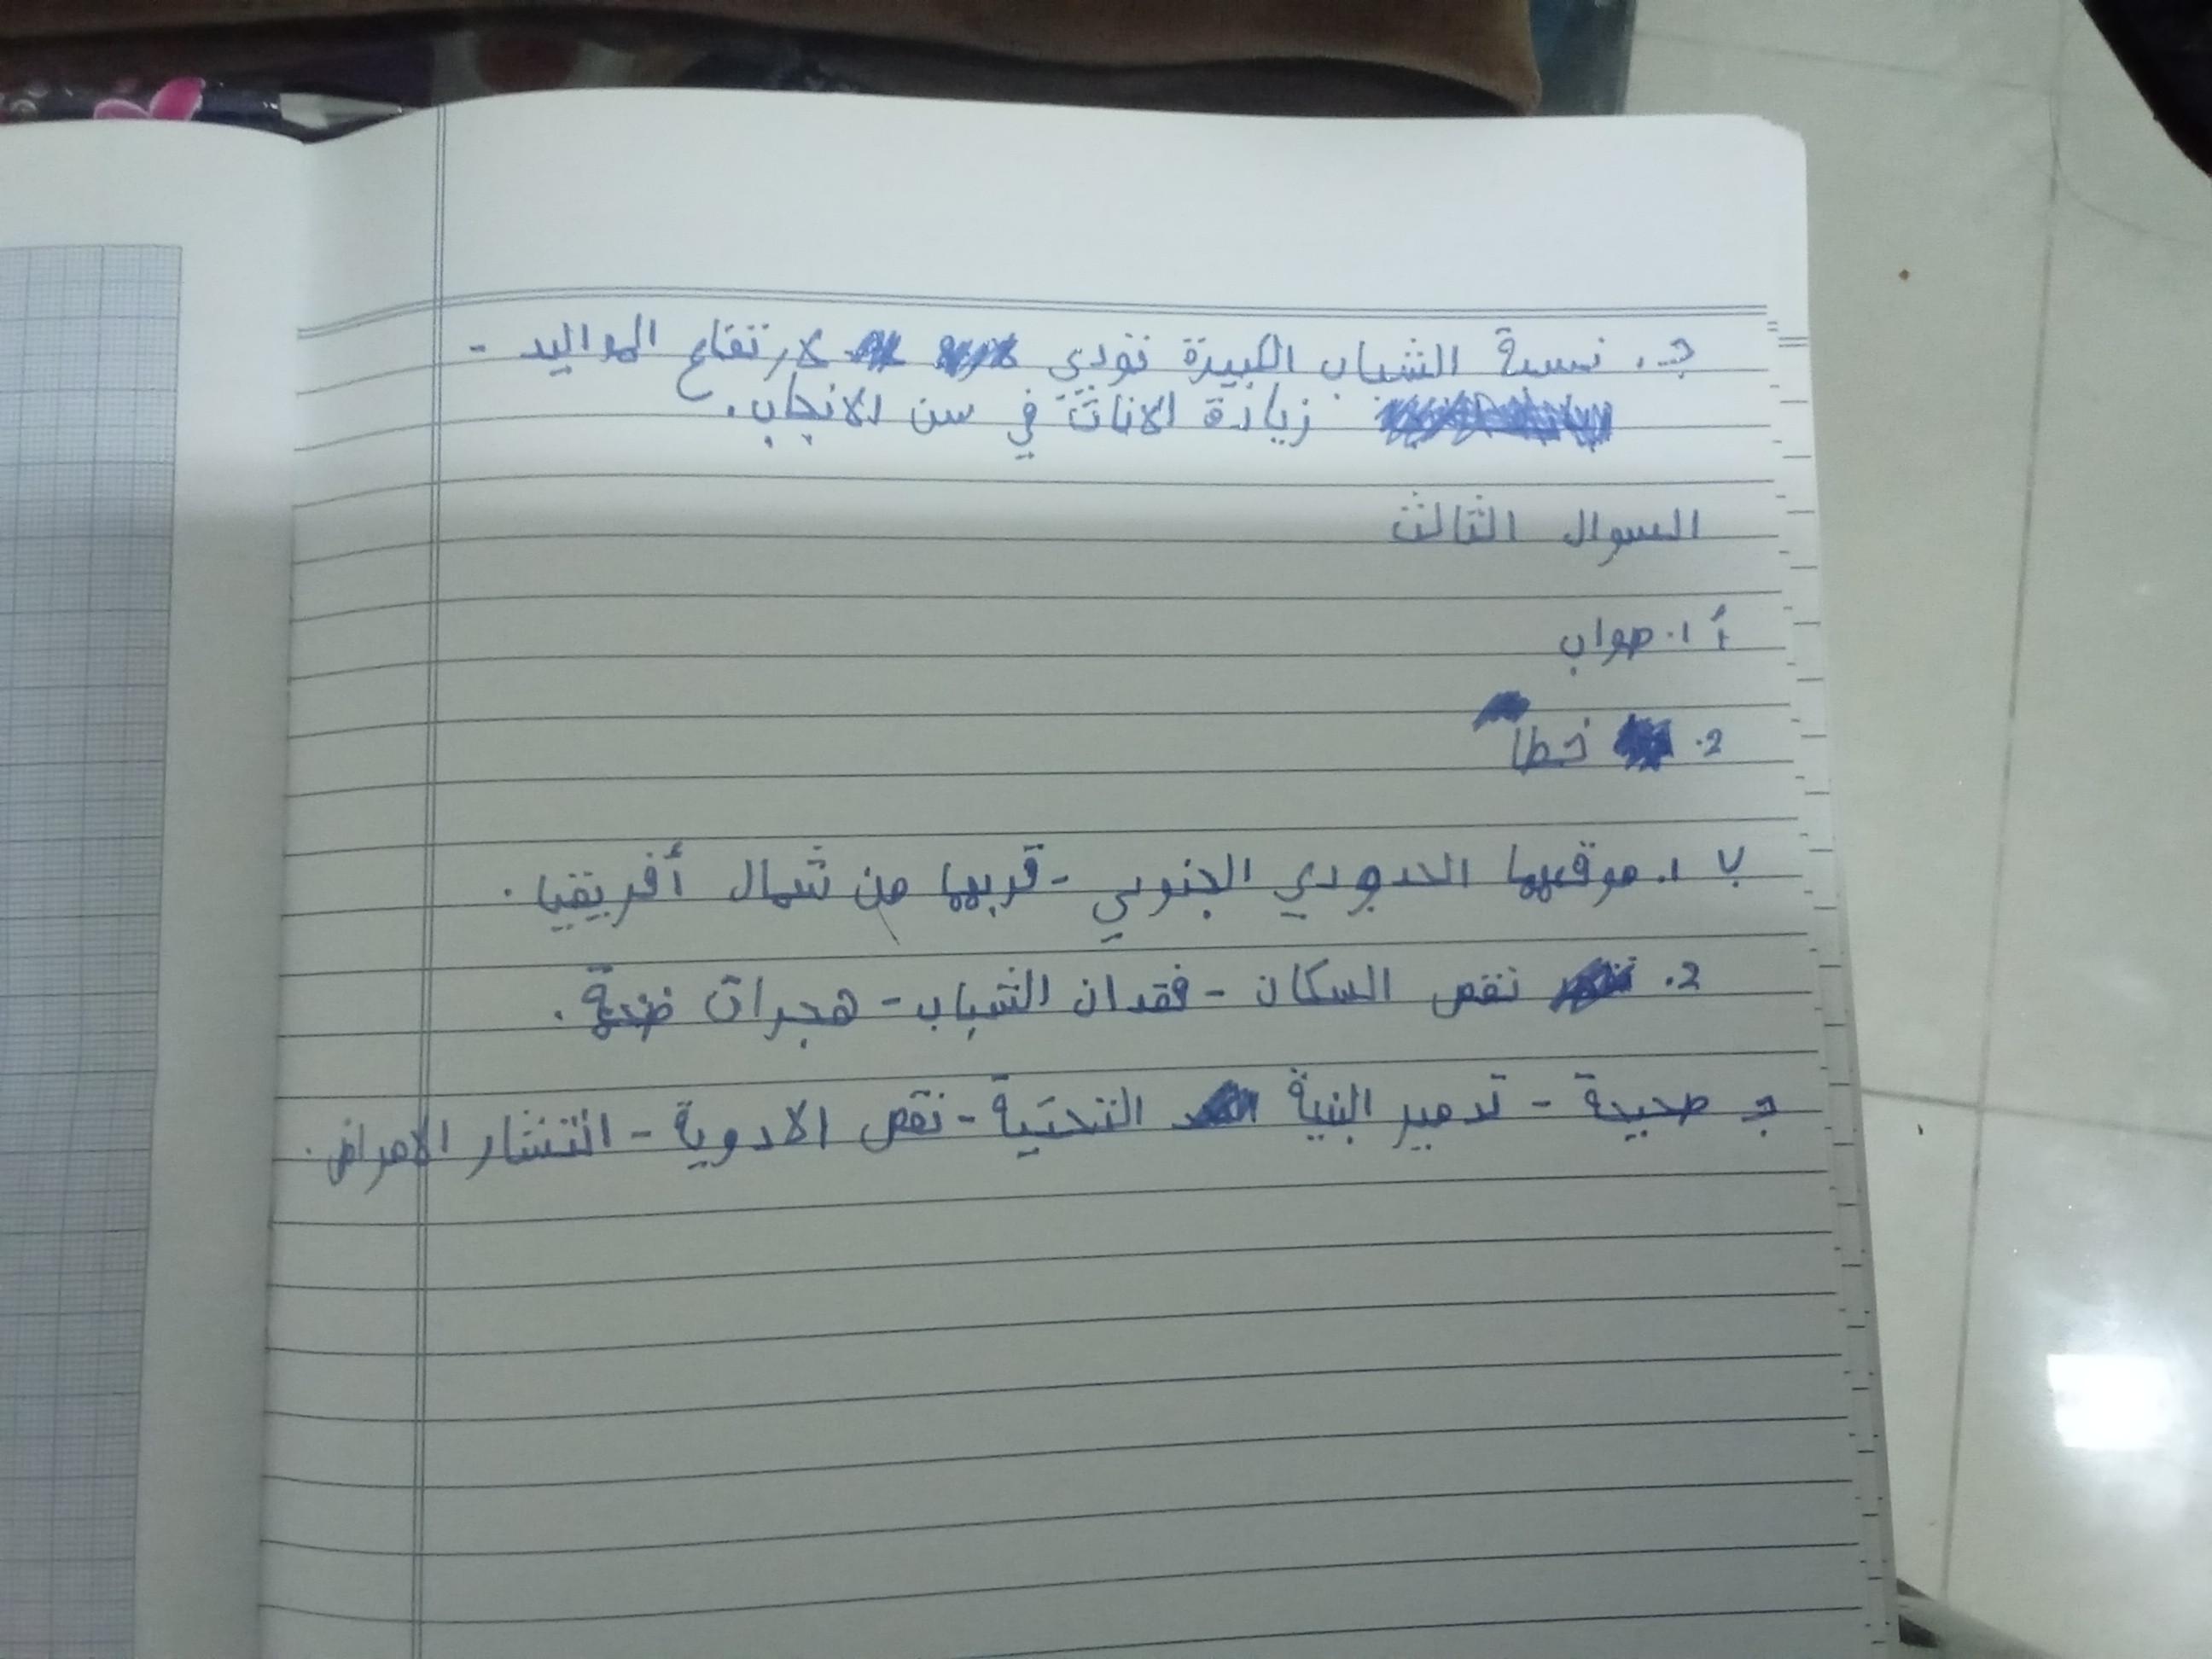 جـ. نسبة الشباب الكبيرة تؤدي لارتفاع المواليد -
زيادة الاناث في سن الانجاب.
السوال الثالث
أ ١. صواب
2. خطا
ب ١. موقعها الحدودي الجنوبي - قربها من شمال أفريقيا.
2. نقص السكان - فقدان الشباب - هجرات ضخمة.
جـ صحيحة - تدمير البنية التحتية - نقص الادوية - انتشار الامراض.